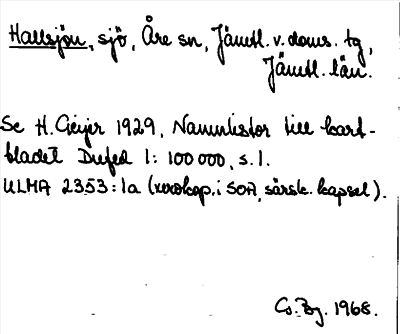 Hallsjön, sjö, Åre sn, Jämtl. v. doms. tg,
Jämtl. län.
Se H. Geijer 1929, Namnlistor till kart-
bladet Dufed 1:100 000, s. 1.
ULMA 2353:1a (xerokop. i SOA, särsk. kapsel).
1968.